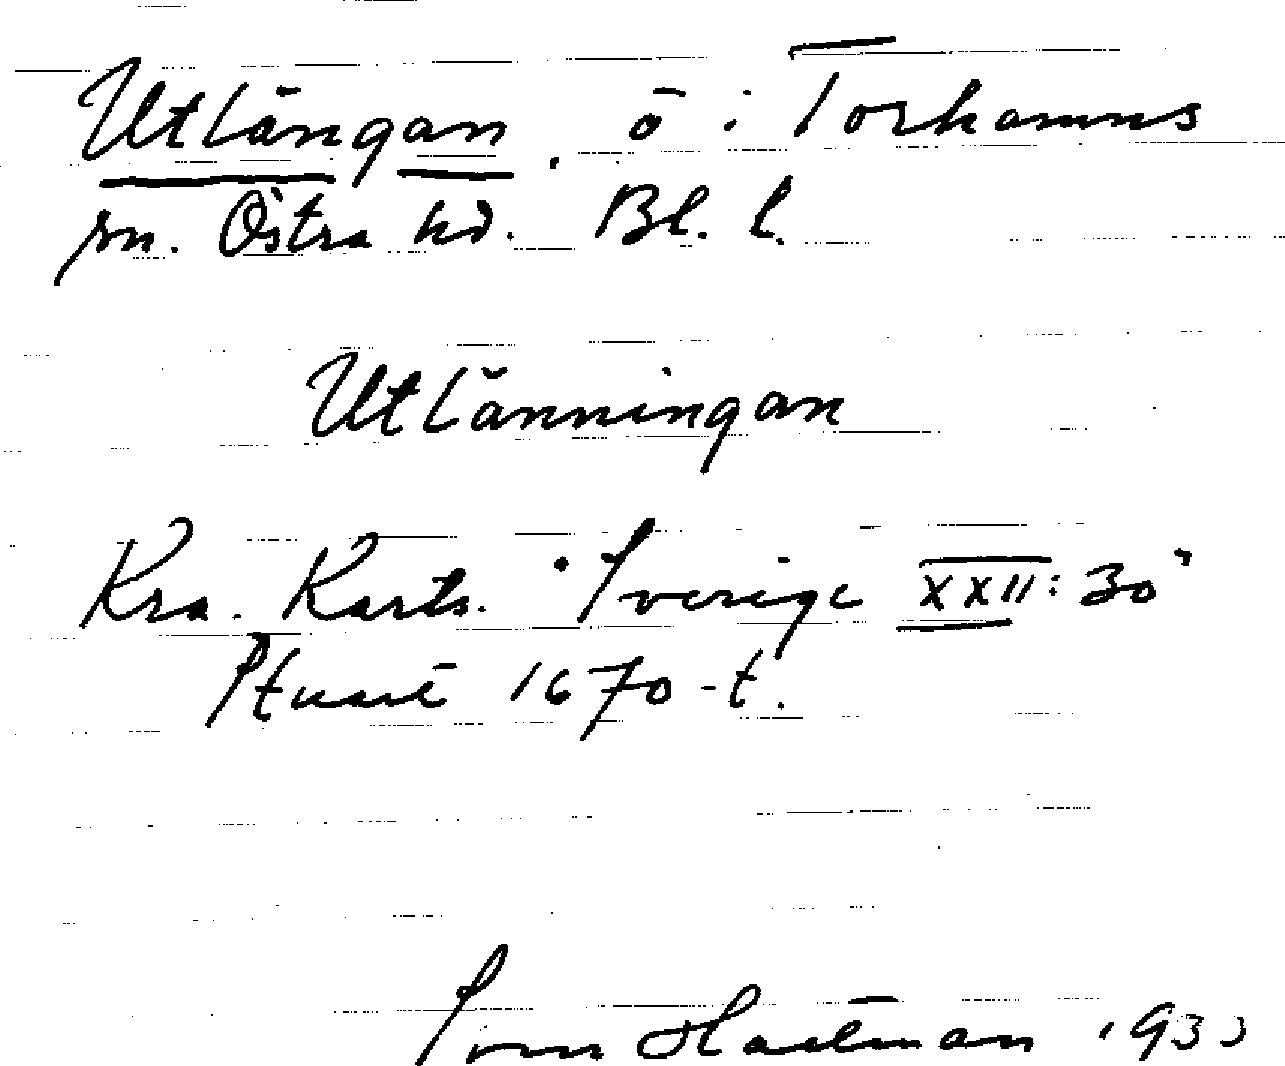 Utlängan, ö i Torhamns
sn. Östra hd. Bl. l.
Utlänningan
Kra. Kartv. "Sverige XXII:30"
Stuart 1670-t.
Sven Hartman 1933